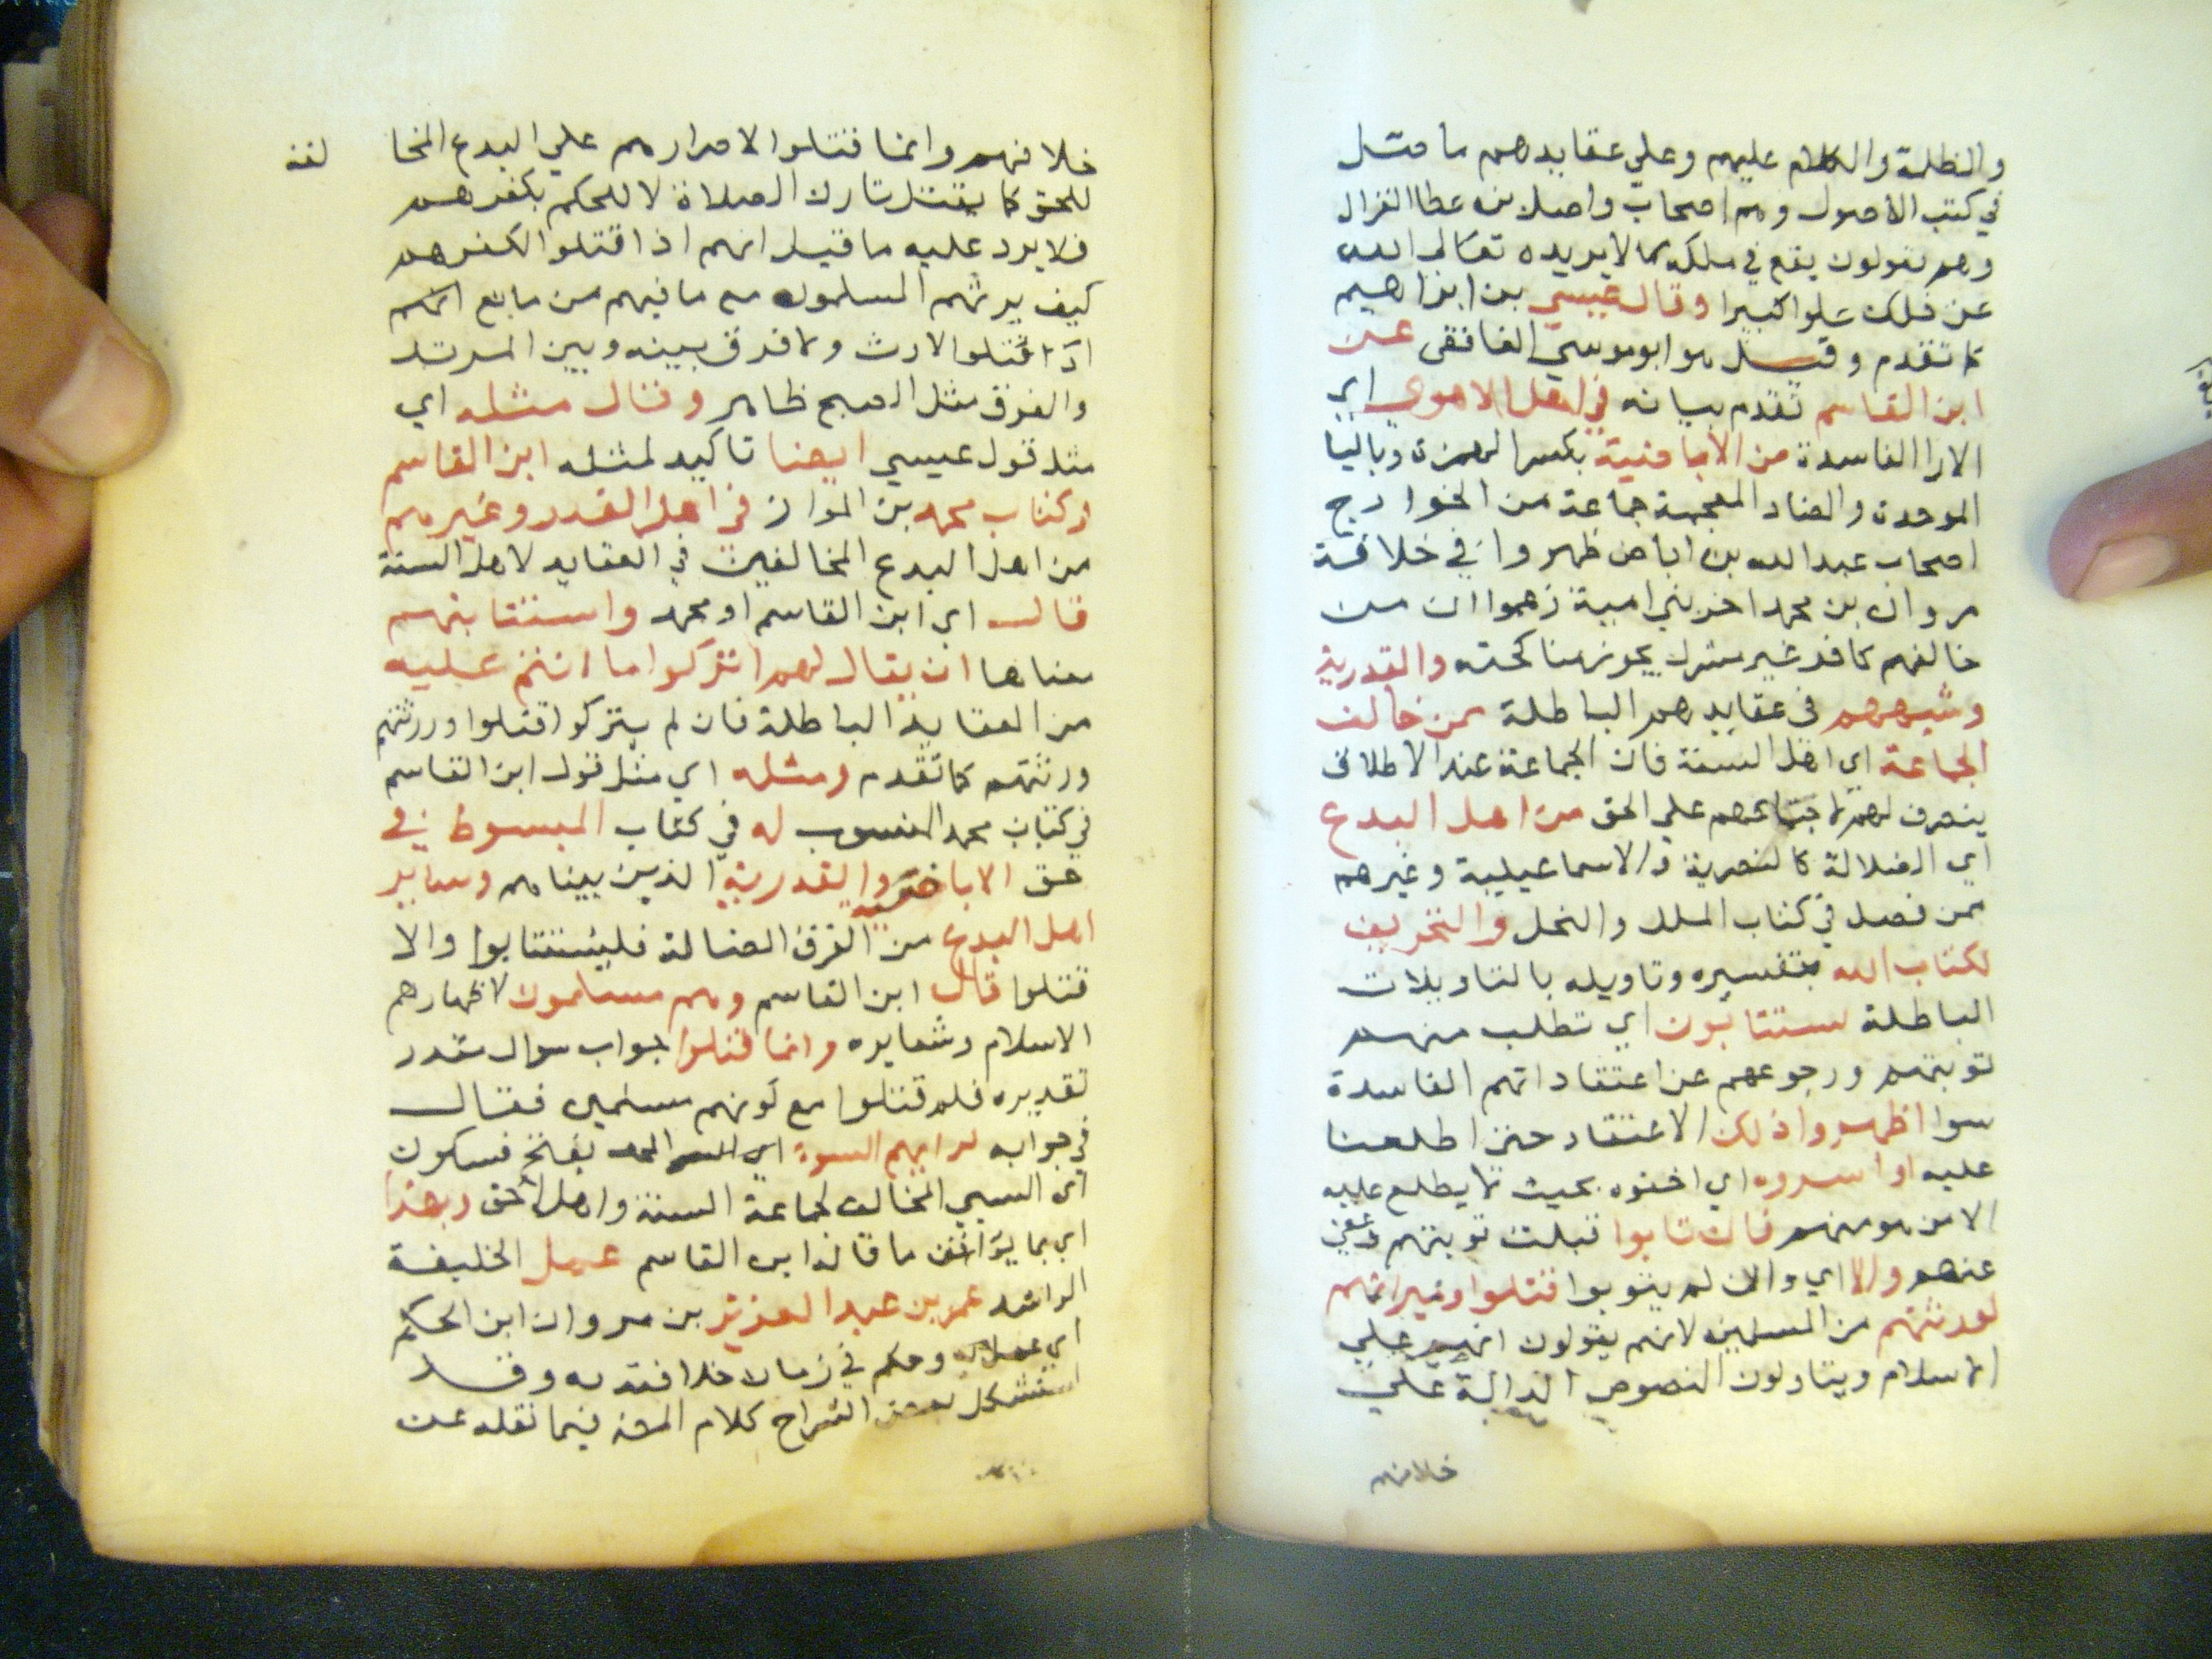 والظلمة والكلام عليهم وعلي عقايدهم ما فصل
في كتب الأصول وهم اصحاب واصل بن عطا الغزال
وهم يقولون يقع في ملكه ما لا يريده تعالى الله
عن ذلك علوا كبيرا وقال عيسي بن ابراهيم
كما تقدم وقيل هو ابو موسي الغافقى عن
ابن القاسم تقدم بيانه في اهل الاهوي اي
الارا الفاسدة من الاباضية بكسر الهمزة وباليا
الموحدة والضاد المعجمة جماعة من الخوارج
اصحاب عبد الله بن اباض ظهروا في خلافة
مروان بن محمد اخر بني امية زعموا ان من
خالفهم كافر غير مشرك يجوز مناكحته والقدرية
وشبههم فى عقايدهم الباطلة ممن خالف
الجماعة اي اهل السنة فان الجماعة عند الاطلاق
ينصرف لهم لاجتماعهم علي الحق من اهل البدع
اي الضلالة كالنصرية والاسماعيلية وغيرهم
ممن فصل في كتاب الملل والنحل والتحريف
لكتاب الله بتفسيره وتاويله بالتاويلات
الباطلة يستتابون اي تطلب منهم
توبتهم ورجوعهم عن اعتقاداتهم الفاسدة
سوا اظهروا ذلك الاعتقاد حتى اطلعنا
عليه او اسروه اي اخفوه بحيث لا يطلع عليه
الا من هو منهم فان تابوا قبلت توبتهم وعفي
عنهم والا اي والان لم يتوبوا قتلوا وميراثهم
لورثتهم من المسلمين لانهم يقولون انهم علي
الاسلام ويتاولون النصوص الدالة علي
خلافهم
خلافهم وانما قتلوا لاصرارهم علي البدع المخا لفة
للحق كما يقتل تارك الصلاة لا للحكم بكفرهم
فلا يرد عليه ما قيل انهم اذا قتلوا لكفرهم
كيف يرثهم المسلمون مع ما فيهم من مانع انهم
اذا قتلوا لارث ولا فرق بينه وبين المرتد
والفرق مثل الصبح ظاهر وقال مثله اي
مثل قول عيسي ايضا تاكيد لمثله ابن القاسم
في كتاب محمد بن المواز في اهل القدر وغيرهم
من اهل البدع المخالفين في العقايد لاهل السنة
قال اي ابن القاسم او محمد واستتابتهم
معناها ان يقال لهم اتركوا ما انتم عليه
من العقايد الباطلة فان لم يتركوا قتلوا وورثتهم
ورثتهم كما تقدم ومثله اي مثل قول ابن القاسم
في كتاب محمد المنسوب له في كتاب المبسوط في
حق الاباضية والقدرية الذين بيناهم وساير
اهل البدع من الفرق الضالة فليستتابوا والا
قتلوا قال ابن القاسم وهم مسلمون لاظهارهم
الاسلام وشعايره وانما قتلوا جواب سوال مقدر
تقديره فلم قتلوا مع كونهم مسلمين فقال
في جوابه لرايهم السوء اي بفتح فسكون
اى السيي المخالف لجماعة السنة واهل الحق وبهذا
اي بما يوافق ما قاله ابن القاسم عمل الخليفة
الراشد عمر بن عبد العزيز بن مروان ابن الحكم
اي وحكم في زمان خلافته به وقد
استشكل بعض الشراح كلام المص فيما نقله عن